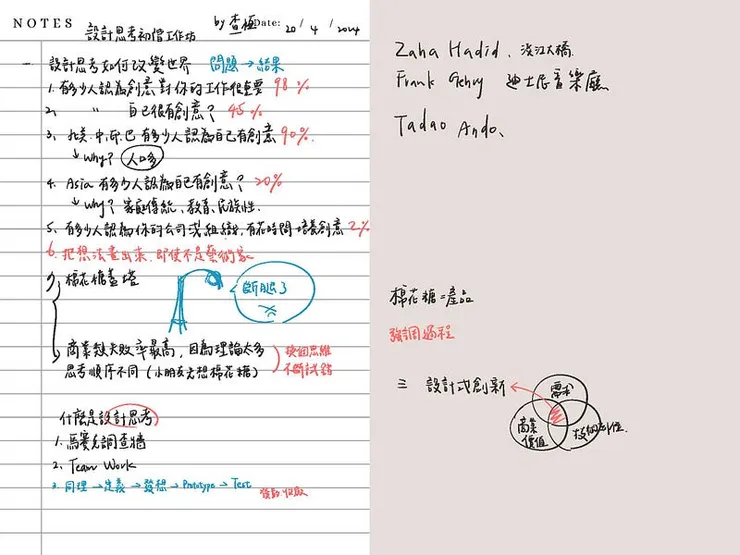 NOTES
by 查極 Date: 20 / 4 / 2024
設計思考初體工作坊
一 設計思考如何改變世界 問題→結果
1. 有多少人認為創意對你的工作很重要 98%
2. " 自己很有創意? 45%
3. 北美.中.印.巴 有多少人認為自己有創意 90%
↳ Why? 人口多
4. Asia 有多少人認為自己有創意? 20%
↳ Why? 家庭傳統、教育、民族性.
5. 有多少人認為你的公司或組織,有花時間培養創意 2%
6. 把想法畫出來.即使不是藝術家
棉花糖蓋塔
斷腿了
商業類失敗率最高,因為理論太多
思考順序不同(小朋友先想棉花糖)
換個思維
不斷試錯
什麼是設計思考
1. 馬賽克調查牆
2. Team Work
3. 同理→定義→發想→Prototype→Test
發散收斂
Zaha Hadid. 淡江大橋.
Frank Gehry 迪士尼音樂廳
Tadao Ando、
棉花糖=產品
強調過程
三 設計式創新
需求
商業
價值
技術